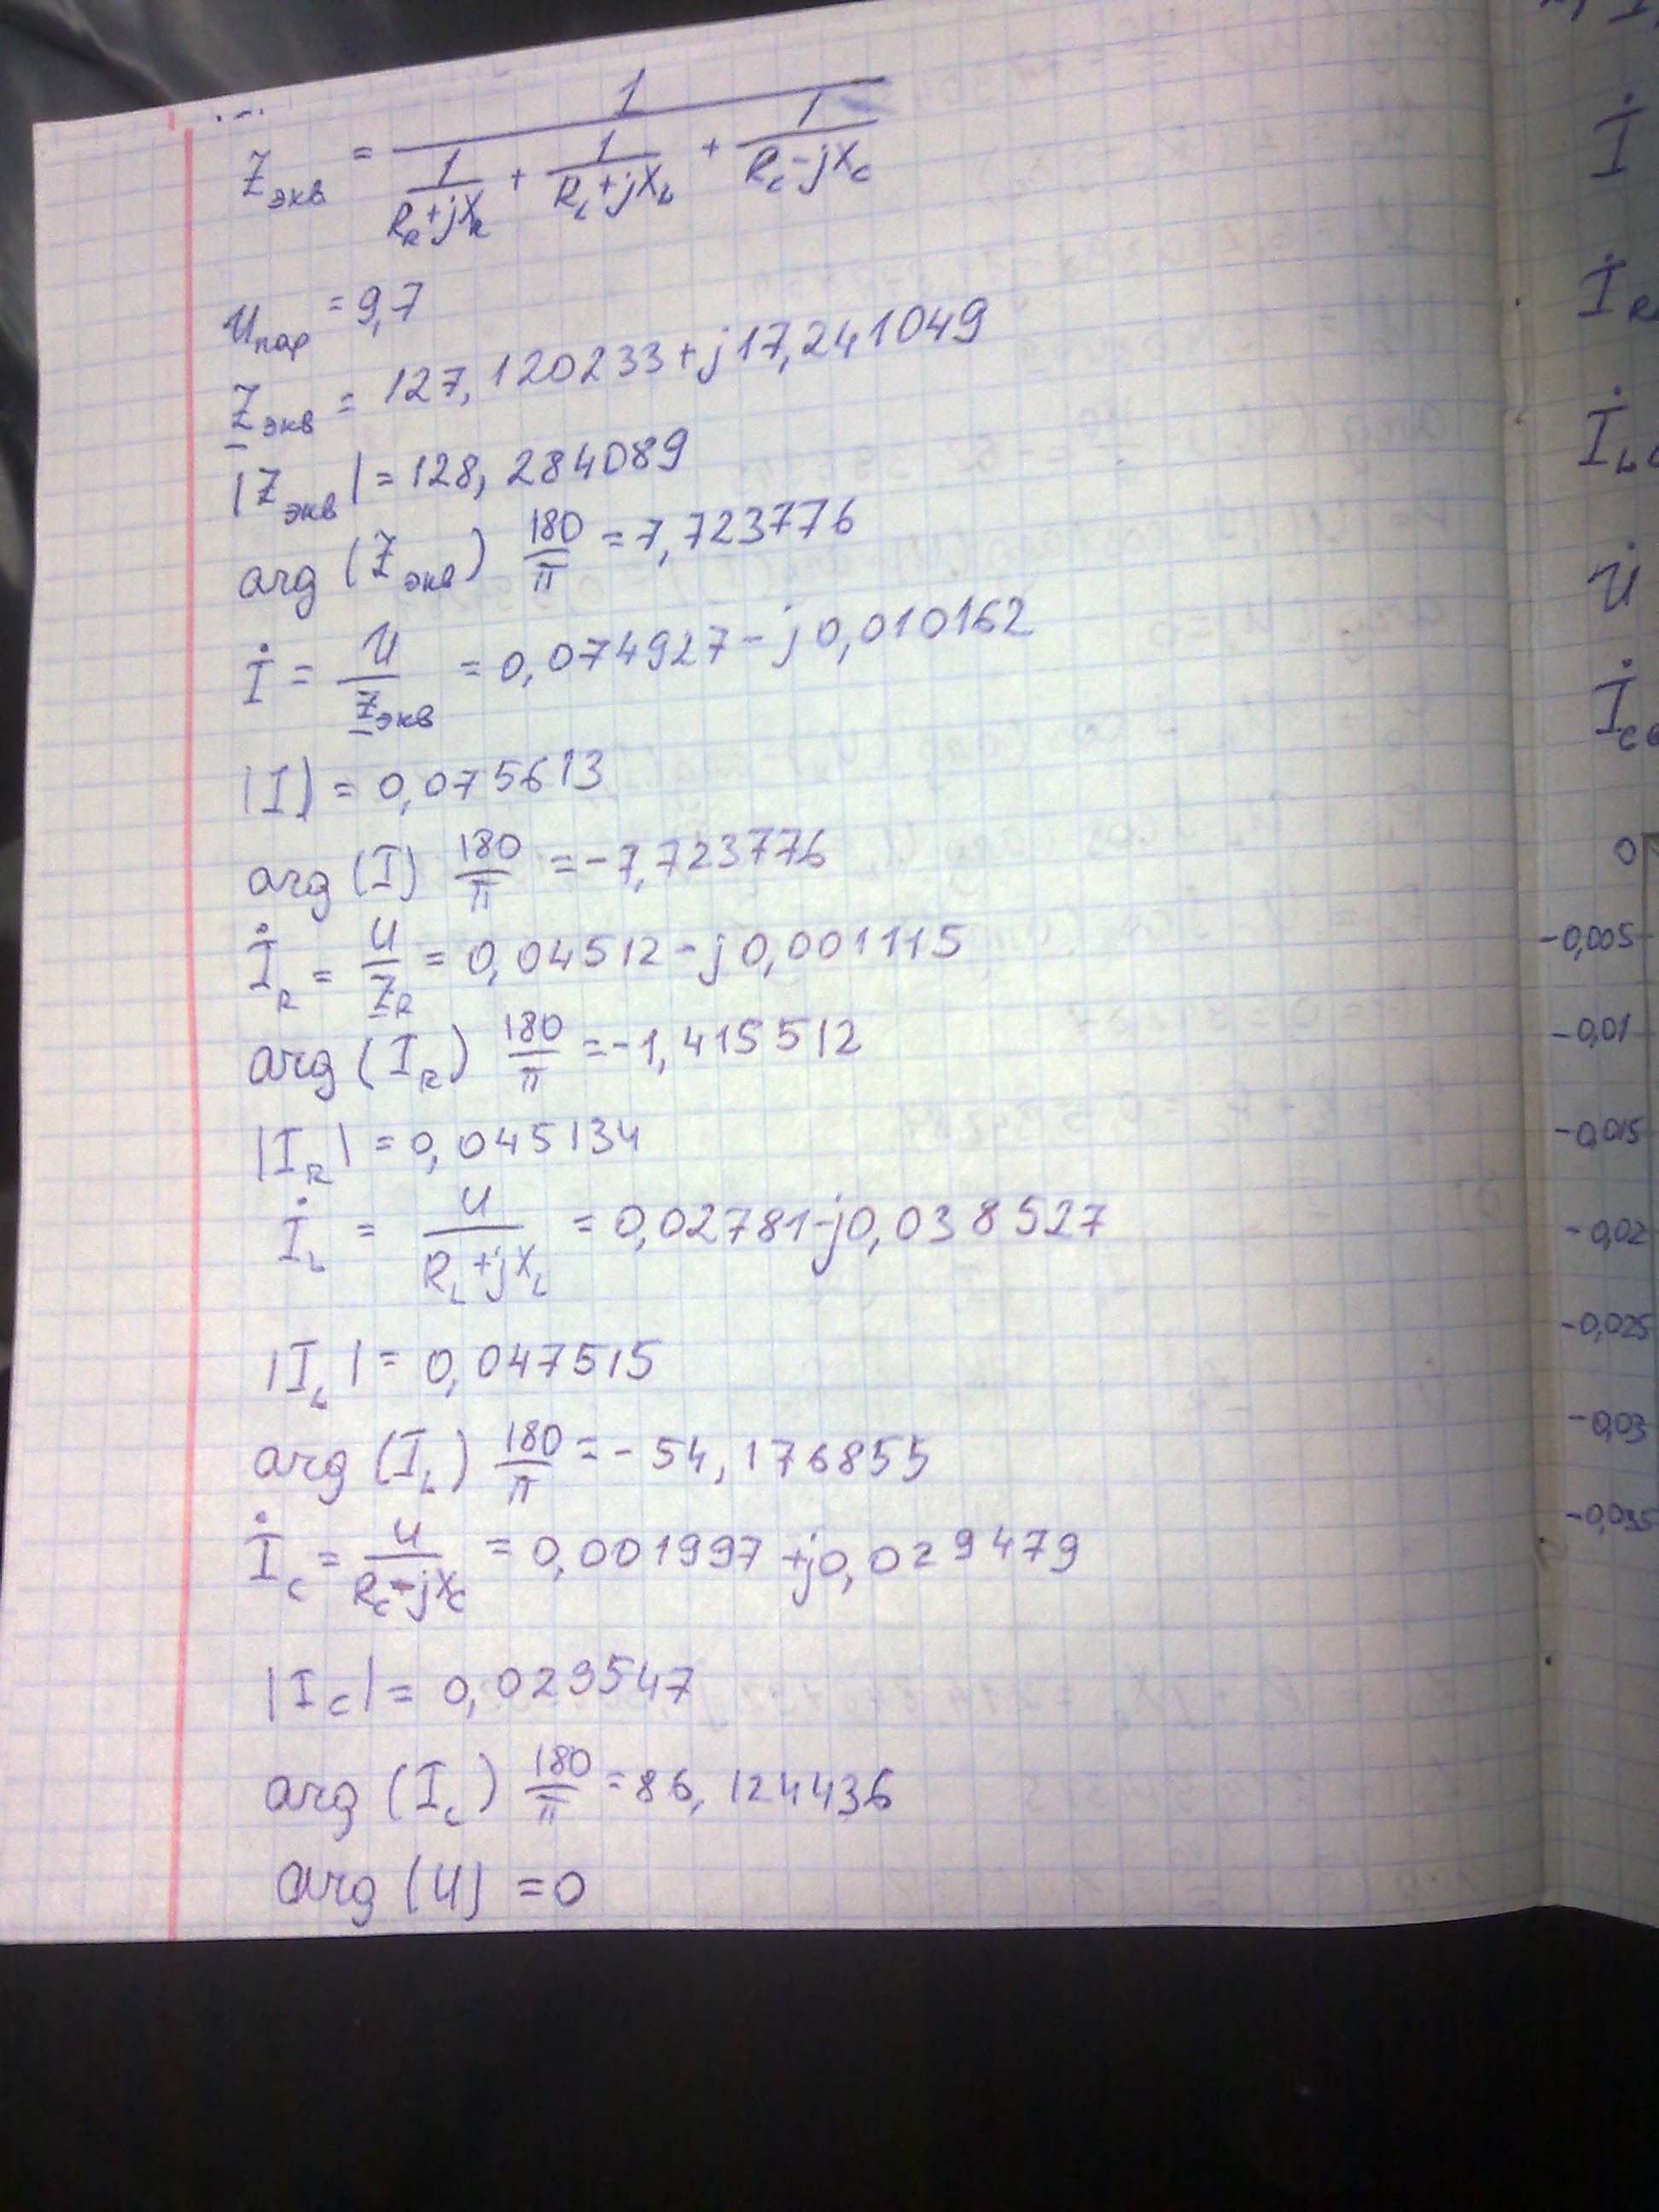 ...
Z_экв = 1 / (1/(R_R+jX_R) + 1/(R_L+jX_L) + 1/(R_C-jX_C))
U_пар = 9,7
Z_экв = 127,120233+j17,241049
|Z_экв| = 128,284089
arg (Z_экв) 180/π = 7,723776
İ = U/Z_экв = 0,074927-j0,010162
|I| = 0,075613
arg (I) 180/π = -7,723776
İ_R = U/Z_R = 0,04512-j0,001115
arg (I_R) 180/π = -1,415512
|I_R| = 0,045134
İ_L = U/(R_L+jX_L) = 0,02781-j0,038527
|I_L| = 0,047515
arg (I_L) 180/π = -54,176855
İ_C = U/(R_C-jX_C) = 0,001997+j0,029479
|I_C| = 0,029547
arg (I_C) 180/π = 86,124436
arg (U) = 0
İ
İ_R
İ_L
U̇
İ_C
0
-0,005
-0,01
-0,015
-0,02
-0,025
-0,03
-0,035